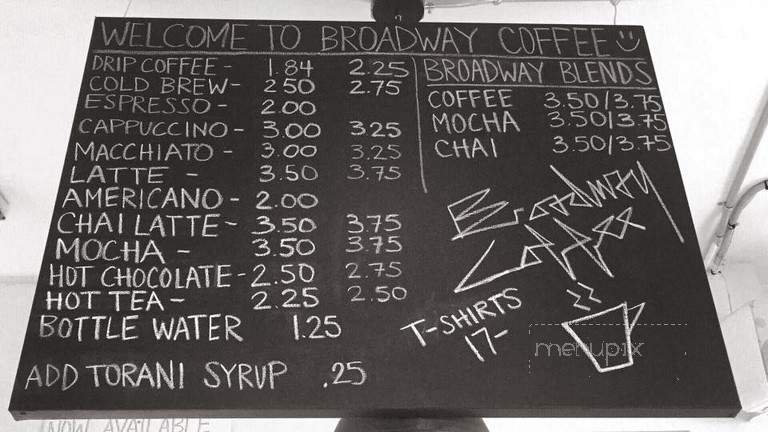 WELCOME TO BROADWAY COFFEE
DRIP COFFEE - 1.84 2.25
COLD BREW - 2.50 2.75
ESPRESSO - 2.00
CAPPUCCINO - 3.00 3.25
MACCHIATO - 3.00 3.25
LATTE - 3.50 3.75
AMERICANO - 2.00
CHAI LATTE - 3.50 3.75
MOCHA - 3.50 3.75
HOT CHOCOLATE - 2.50 2.75
HOT TEA - 2.25 2.50
BOTTLE WATER 1.25
ADD TORANI SYRUP .25
BROADWAY BLENDS
COFFEE 3.50/3.75
MOCHA 3.50/3.75
CHAI 3.50/3.75
Broadway
Coffee
T-SHIRTS
17-
menupix
NOW AVAILABLE